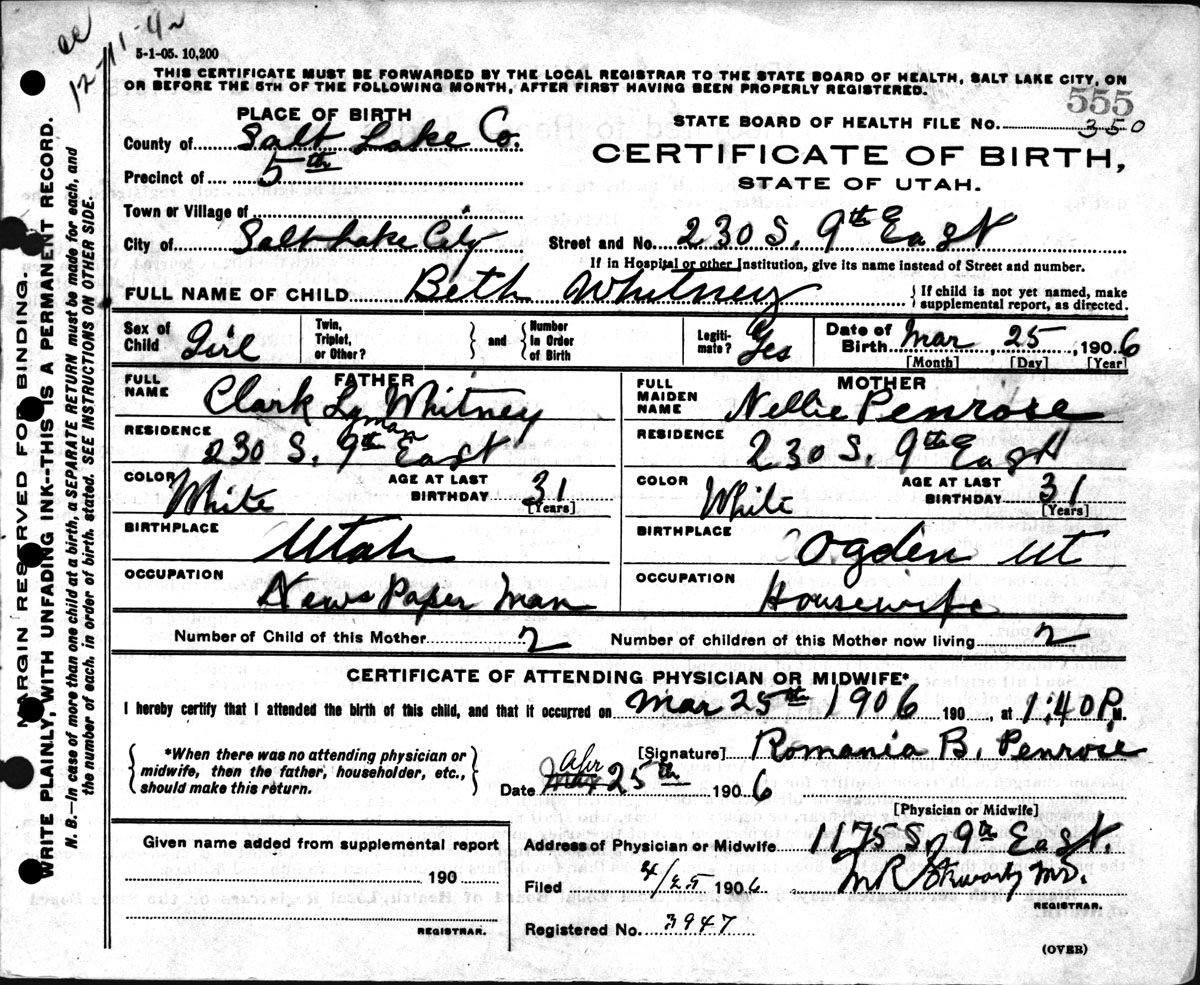 cc
12-11-42
5-1-05. 10,200
THIS CERTIFICATE MUST BE FORWARDED BY THE LOCAL REGISTRAR TO THE STATE BOARD OF HEALTH, SALT LAKE CITY, ON
OR BEFORE THE 5TH OF THE FOLLOWING MONTH, AFTER FIRST HAVING BEEN PROPERLY REGISTERED.
555
PLACE OF BIRTH
STATE BOARD OF HEALTH FILE No. 350
County of Salt Lake Co.
CERTIFICATE OF BIRTH,
Precinct of 5th
STATE OF UTAH.
Town or Village of
City of Salt Lake City Street and No. 230 S. 9th East
If in Hospital or other Institution, give its name instead of Street and number.
FULL NAME OF CHILD Beth Whitney { If child is not yet named, make supplemental report, as directed.
Sex of Child Girl Twin, Triplet, or Other? } and { Number in Order of Birth Legiti- mate? Yes Date of Birth Mar, 25, 1906
[Month] [Day] [Year]
FATHER MOTHER
FULL NAME Clark Lyman Whitney FULL MAIDEN NAME Nellie Penrose
RESIDENCE 230 S. 9th East RESIDENCE 230 S. 9th East
COLOR White AGE AT LAST BIRTHDAY 31 [Years] COLOR White AGE AT LAST BIRTHDAY 31 [Years]
BIRTHPLACE Utah BIRTHPLACE Ogden Ut
OCCUPATION News Paper Man OCCUPATION Housewife
Number of Child of this Mother 2 Number of children of this Mother now living 2
CERTIFICATE OF ATTENDING PHYSICIAN OR MIDWIFE*
I hereby certify that I attended the birth of this child, and that it occurred on Mar 25th 1906 190 , at 1:40 P.M.
{ *When there was no attending physician or midwife, then the father, householder, etc., should make this return. }
[Signature] Romania B. Penrose
Date Mar Apr 25th 1906
[Physician or Midwife]
Given name added from supplemental report
Address of Physician or Midwife 1175 S, 9th East.
190
Filed 4/25 1906 M.D.
REGISTRAR.
REGISTRAR.
Registered No. 3947
(OVER)
MARGIN RESERVED FOR BINDING.
WRITE PLAINLY, WITH UNFADING INK--THIS IS A PERMANENT RECORD.
N. B.--In case of more than one child at a birth, a SEPARATE RETURN must be made for each, and
the number of each, in order of birth, stated. SEE INSTRUCTIONS ON OTHER SIDE.